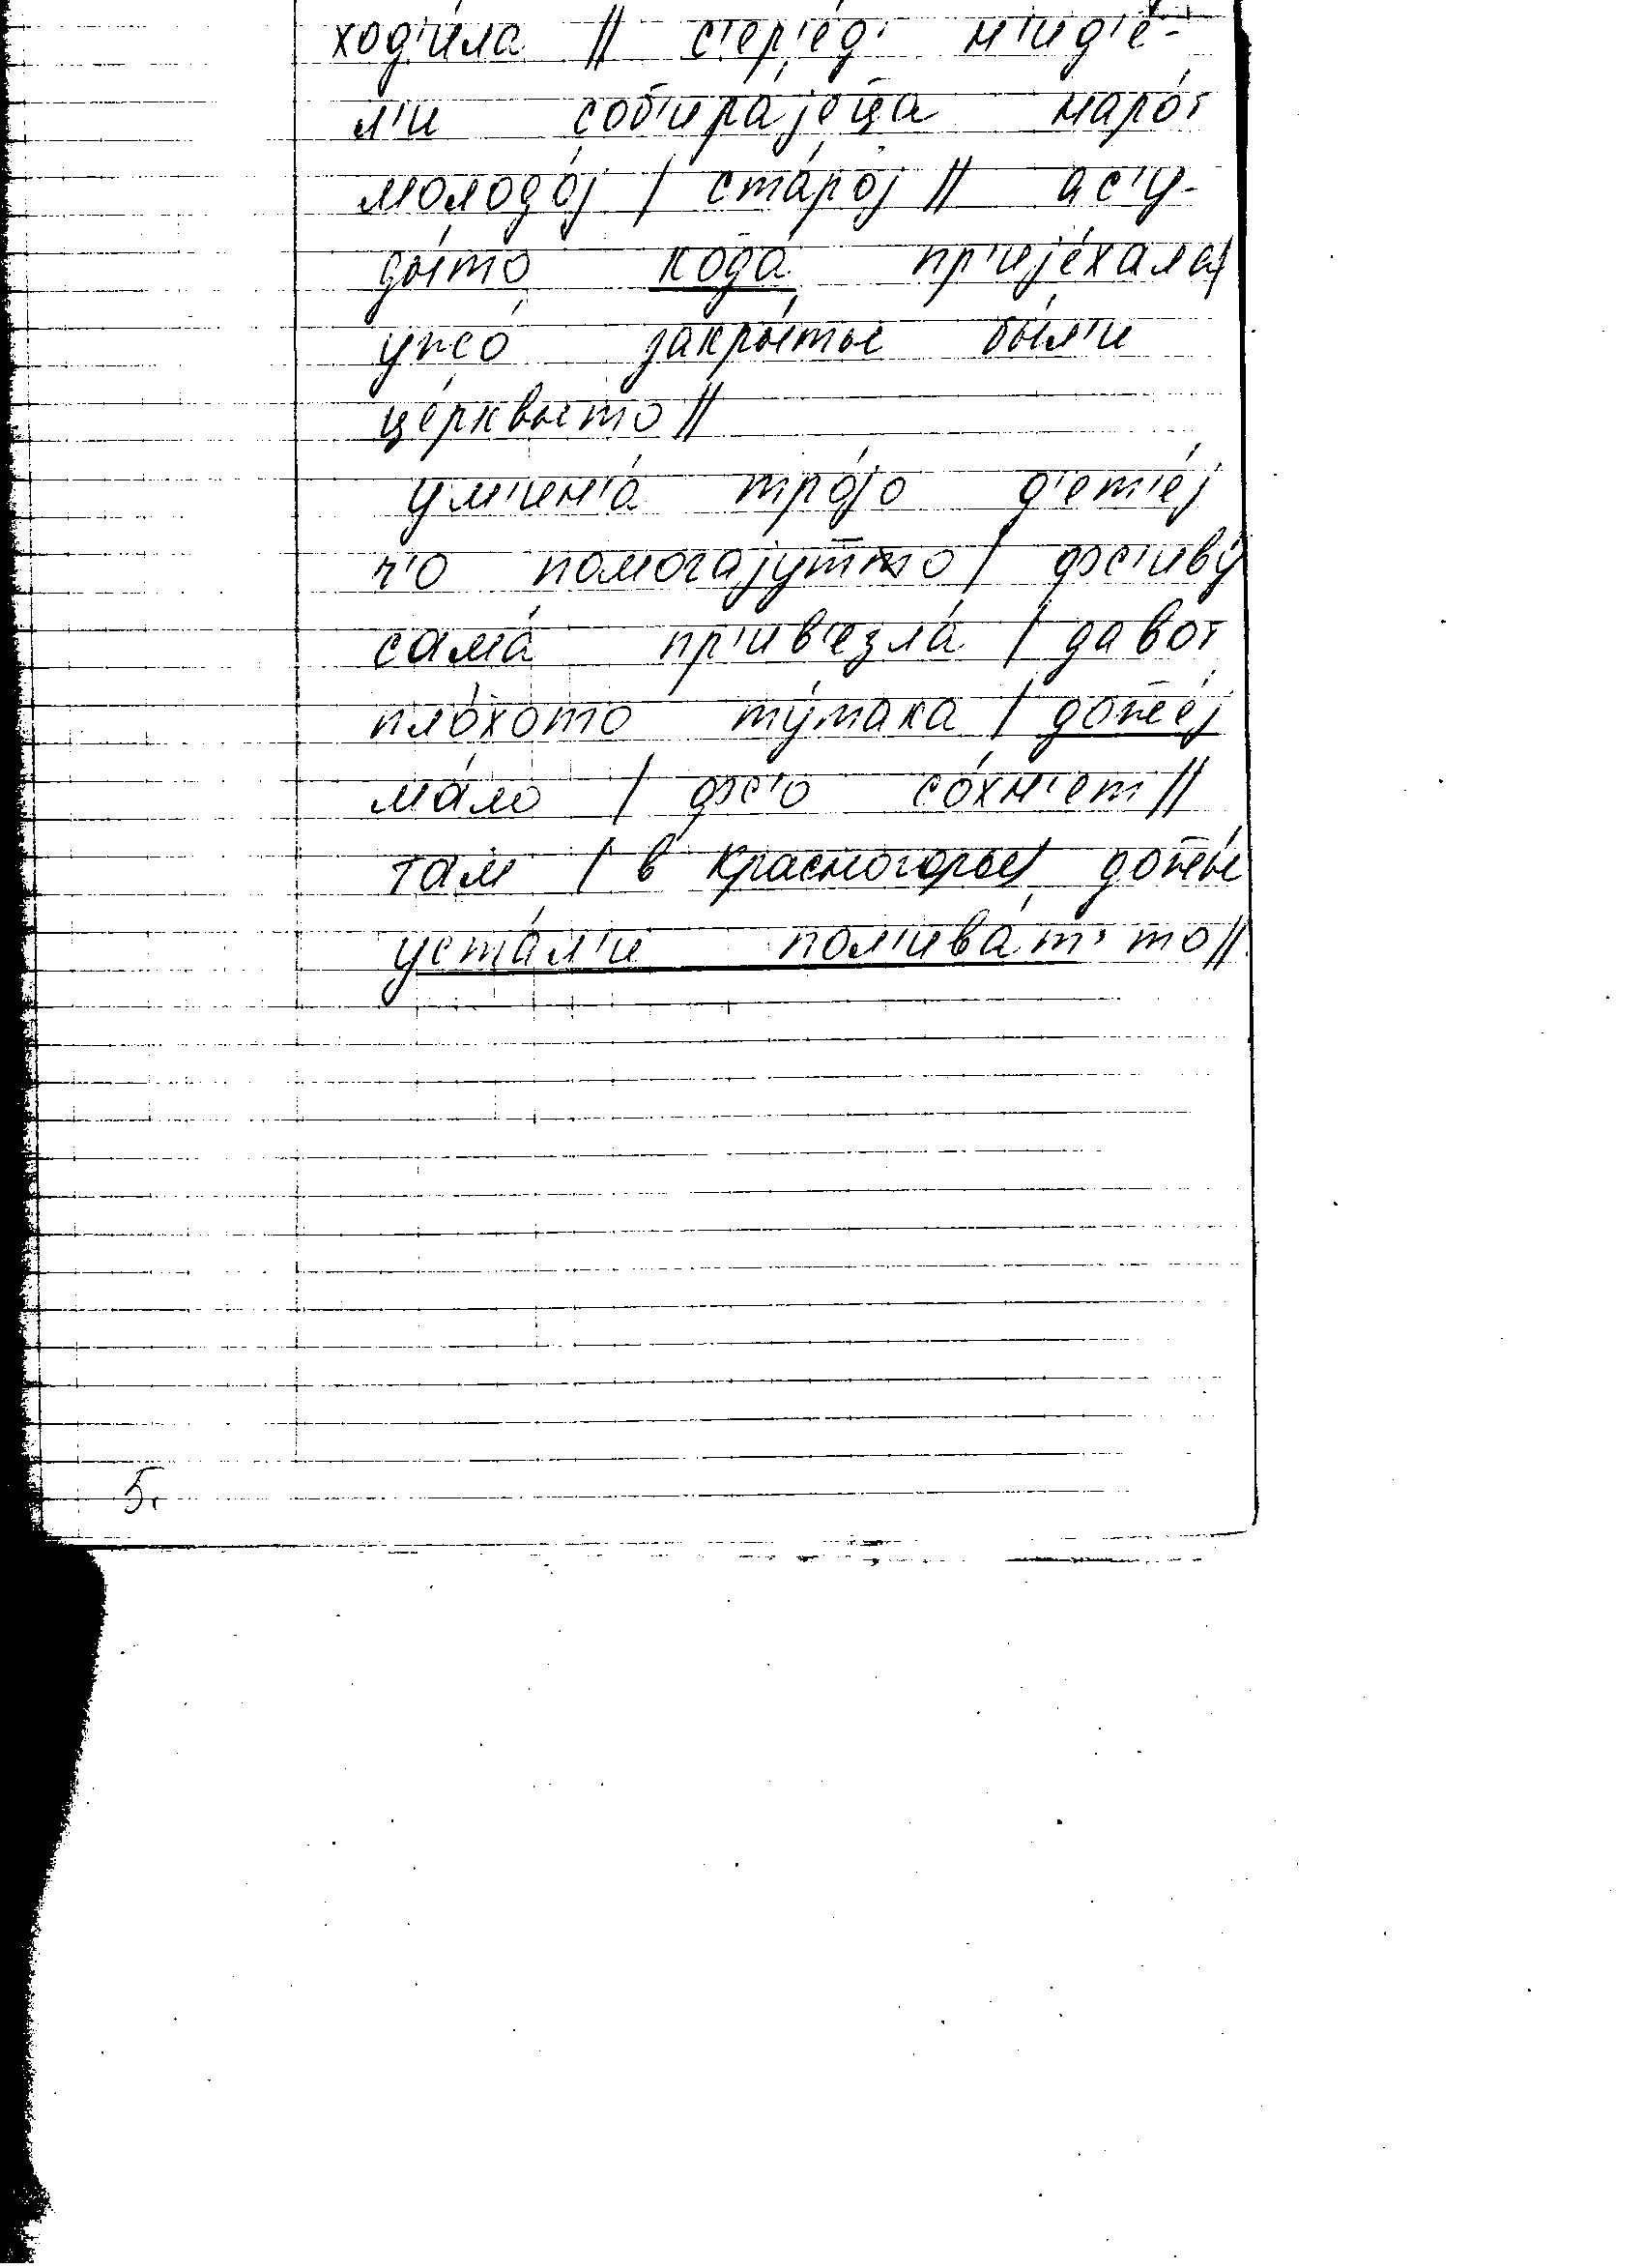 ход'и́ла // с'ер'ед' н'ид'е́-
л'и соб'ира́јеца наро́т
молодо́ј / ста́рој // ас'у-
ды́то кода́ пр'ије́хала/
ужо́ закры́тые бы́л'и
це́рквыто //
ум'ин'а́ тро́јо д'ет'е́ј
ч'о помогајутто / фс'иву́
сама́ пр'ив'езла́ / да вот
пло́хото ту́така / дожже́ј
ма́ло / фс'о со́хн'ет //
там / в Красногорье/ дожжы́
уста́л'и пол'ива́т'то //
5.